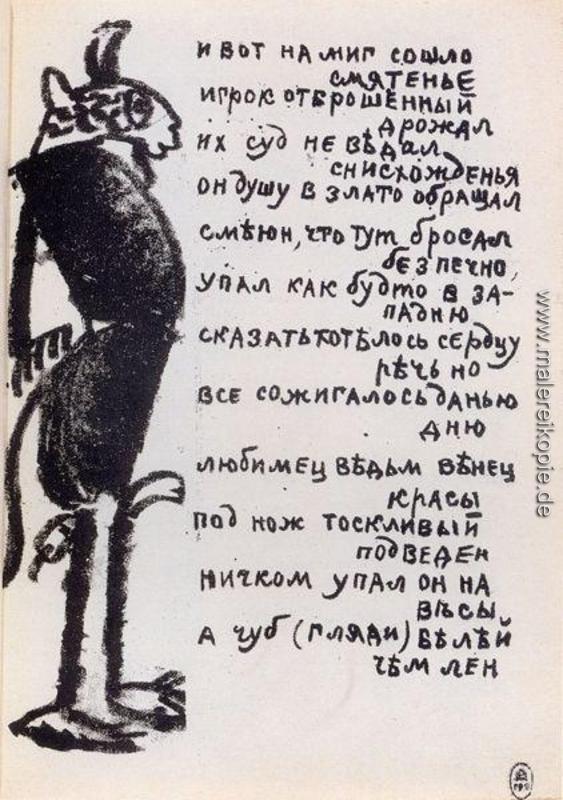 и вот на миг сошло
смятенье
игрок отброшенный
дрожал
их суд не вѣдал
снисхожденья
он душу в злато обращал
смѣюн, что тут бросал
безпечно,
упал как будто в за-
падню
сказать хотѣлось сердцу
рѣчь но
все сожигалось данью
дню
любимец вѣдьм вѣнец
красы
под нож тоскливый
подведен
ничком упал он на
вѣсы
а чуб (гляди) бѣлѣй
чѣм лен
www.malereikopie.de